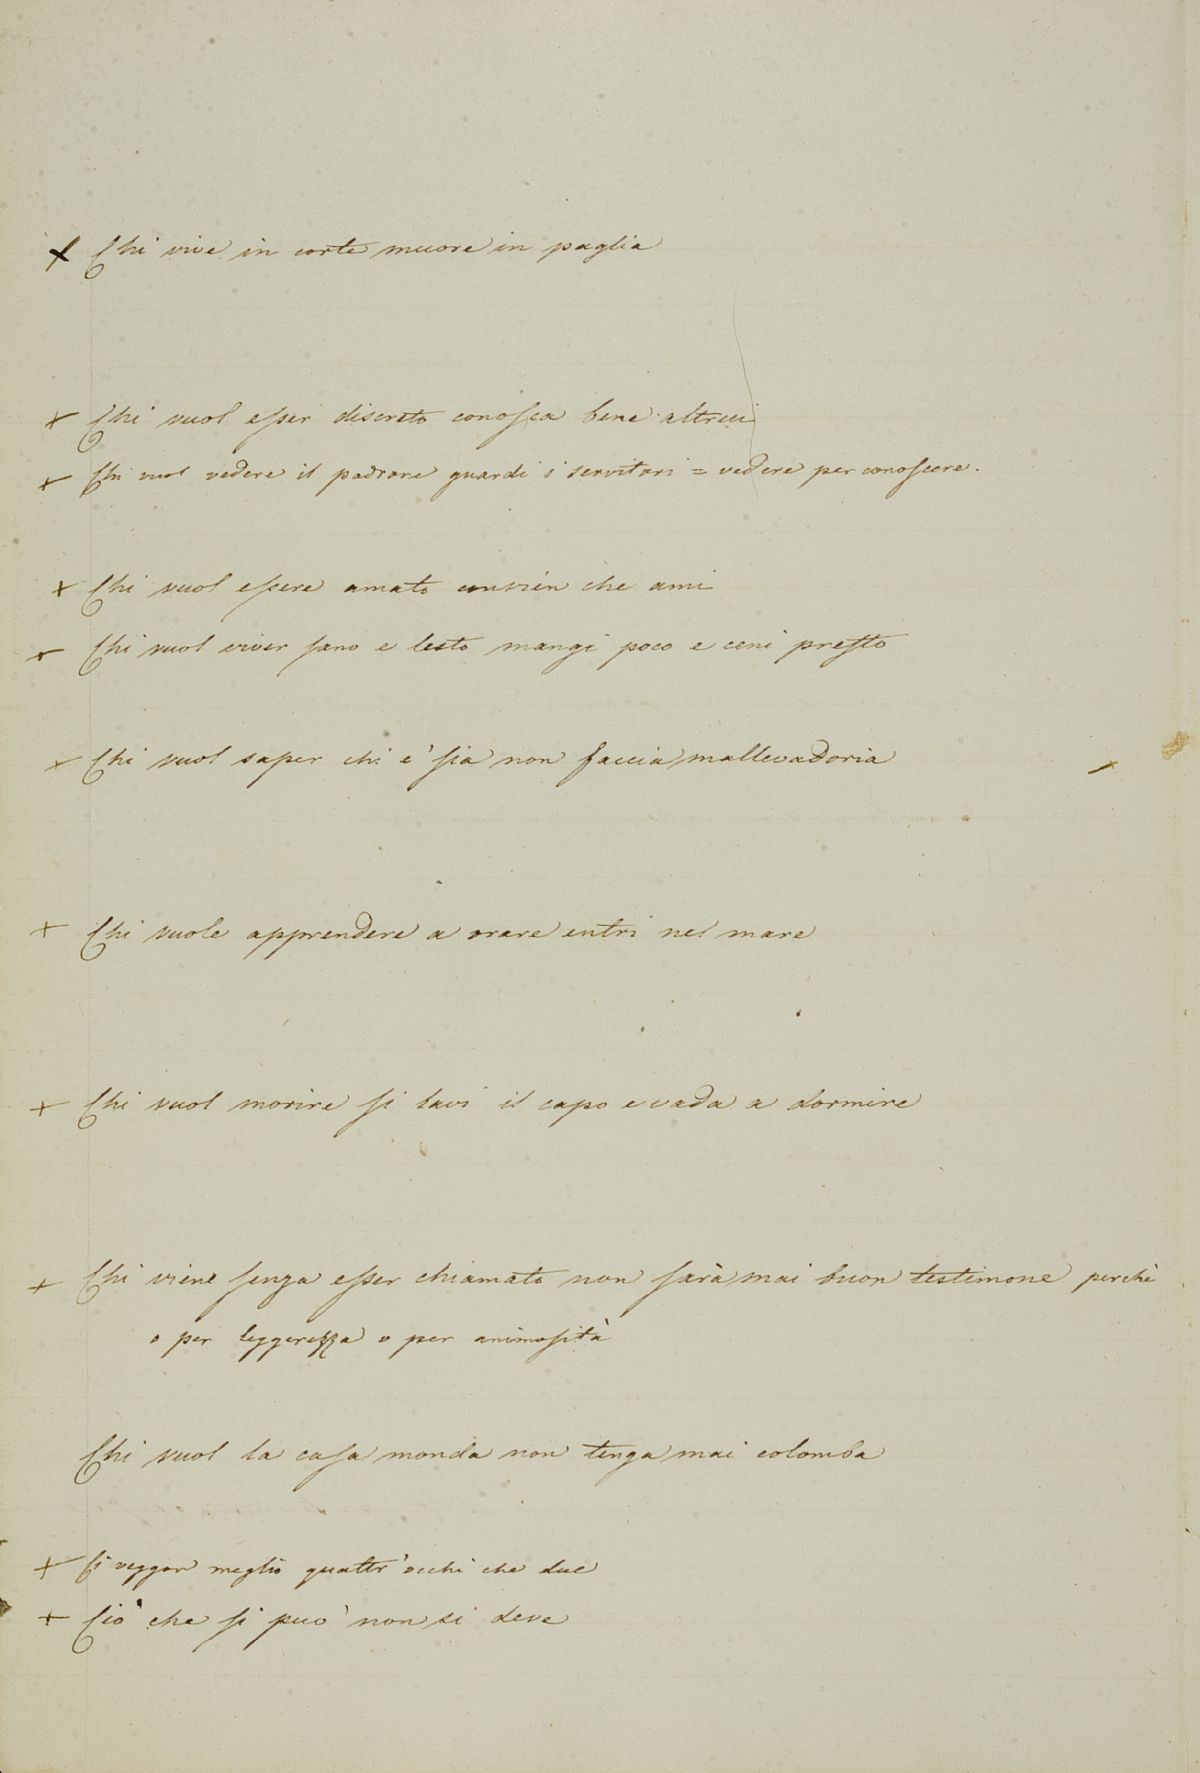 + Chi vive in corte muore in paglia
+ Chi vuol esser discreto conosca bene altrui
+ Chi vuol vedere il padrone guardi i servitori = vedere per conoscere.
+ Chi vuol essere amato convien che ami
+ Chi vuol viver sano e lesto mangi poco e ceni presto
+ Chi vuol saper chi e' sia non faccia mallevadoria
+ Chi vuole apprendere a orare entri nel mare
+ Chi vuol morire si lavi il capo e vada a dormire
+ Chi viene senza esser chiamato non sarà mai buon testimone perchè
o per leggerezza o per animosità
Chi vuol la casa monda non tenga mai colomba
+ Si veggon meglio quattr'occhi che due
+ Ciò che si può non si deve